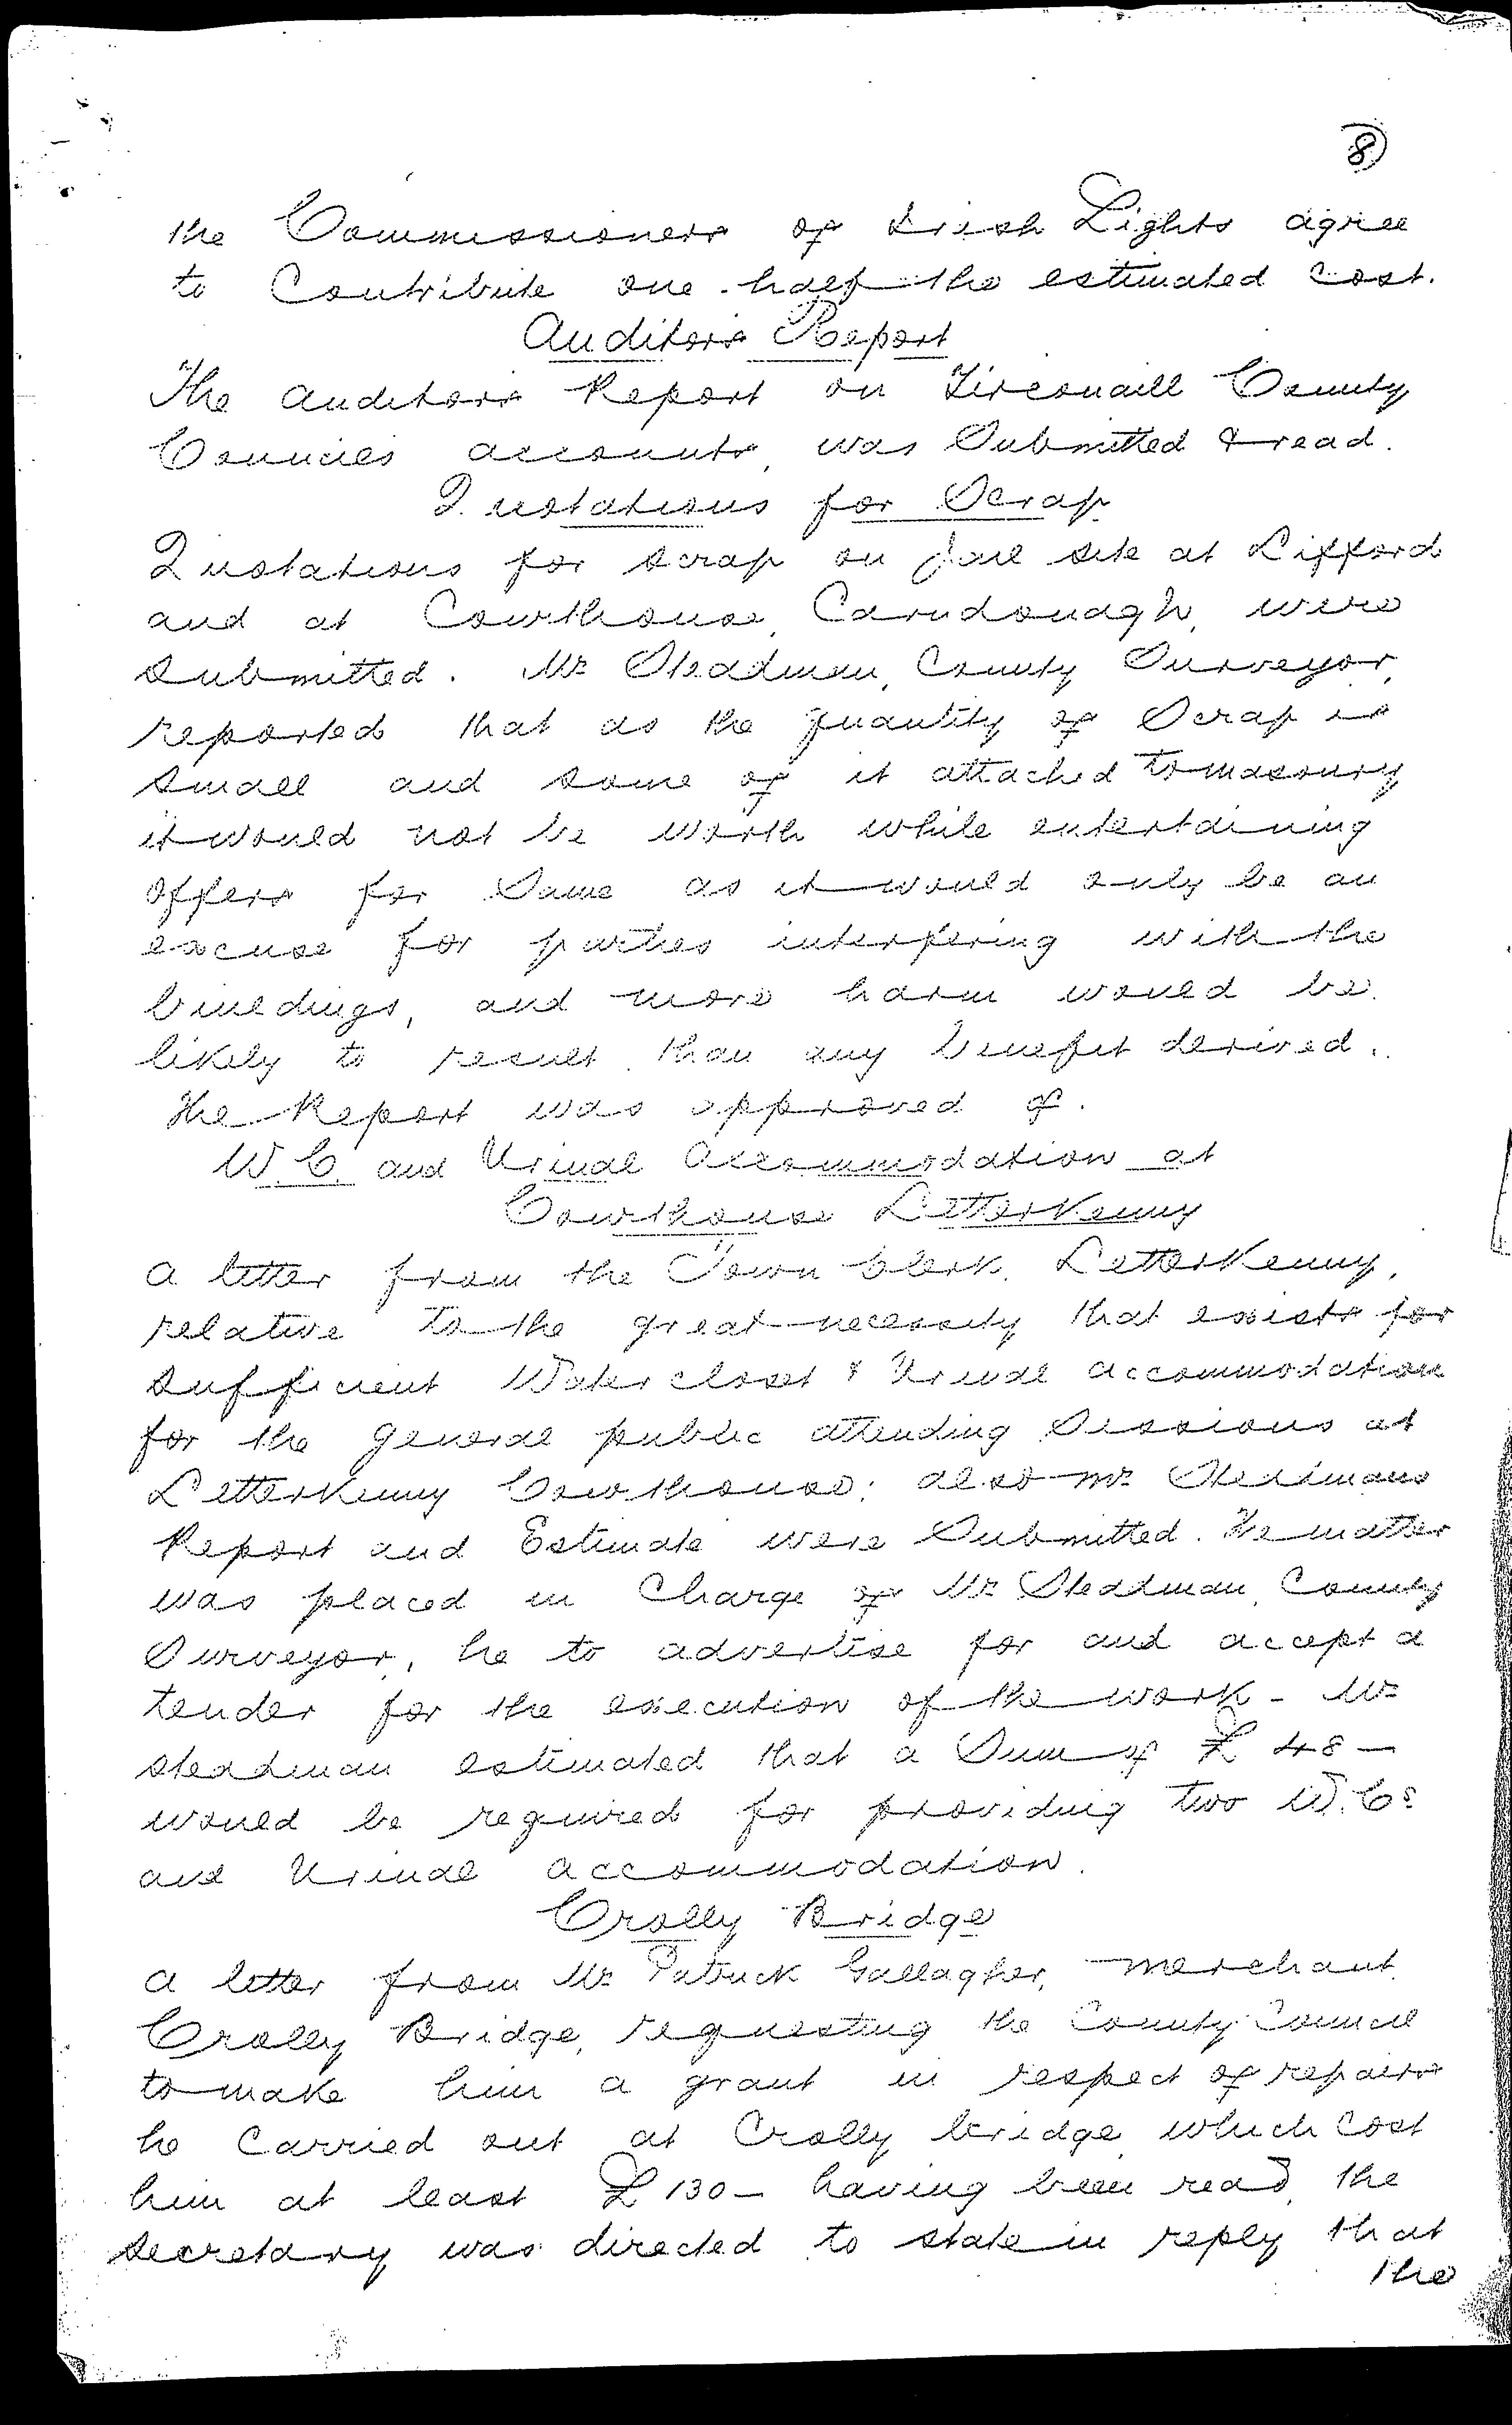 8
the Commissioners of Irish Lights agree
to Contribute one-half the estimated cost.
Auditors Report
The Auditors Report on Tirconaill County
Councils accounts, was Submitted & read.
Quotations for Scrap
Quotations for scrap on Jail site at Lifford
and at Courthouse, Carndonagh, were
submitted. Mr Steadman, County Surveyor,
reported that as the quantity of Scrap is
small and some of it attached to masonry
it would not be worth while entertaining
offers for Same as it would only be an
excuse for parties interfering with the
buildings, and more harm would be
likely to result than any benefit derived.
The Report was approved of.
W.C. and Urinal Accommodation at
Courthouse Letterkenny
A letter from the Town Clerk, Letterkenny,
relative to the great necessity that exists for
sufficient Water closet & Urinal accommodation
for the general public attending Sessions at
Letterkenny Courthouse; also Mr Steadmans
Report and Estimate were Submitted. The matter
was placed in Charge of Mr Steadman, County
Surveyor, he to advertise for and accept a
tender for the execution of the work - Mr
Steadman estimated that a Sum of £48 -
would be required for providing two W.Cs
and Urinal accommodation.
Crolly Bridge
A letter from Mr Patrick Gallagher, merchant,
Crolly Bridge, requesting the County Council
to make him a grant in respect of repairs
he Carried out at Crolly bridge which Cost
him at least £130 - having been read, the
Secretary was directed to state in reply that
the